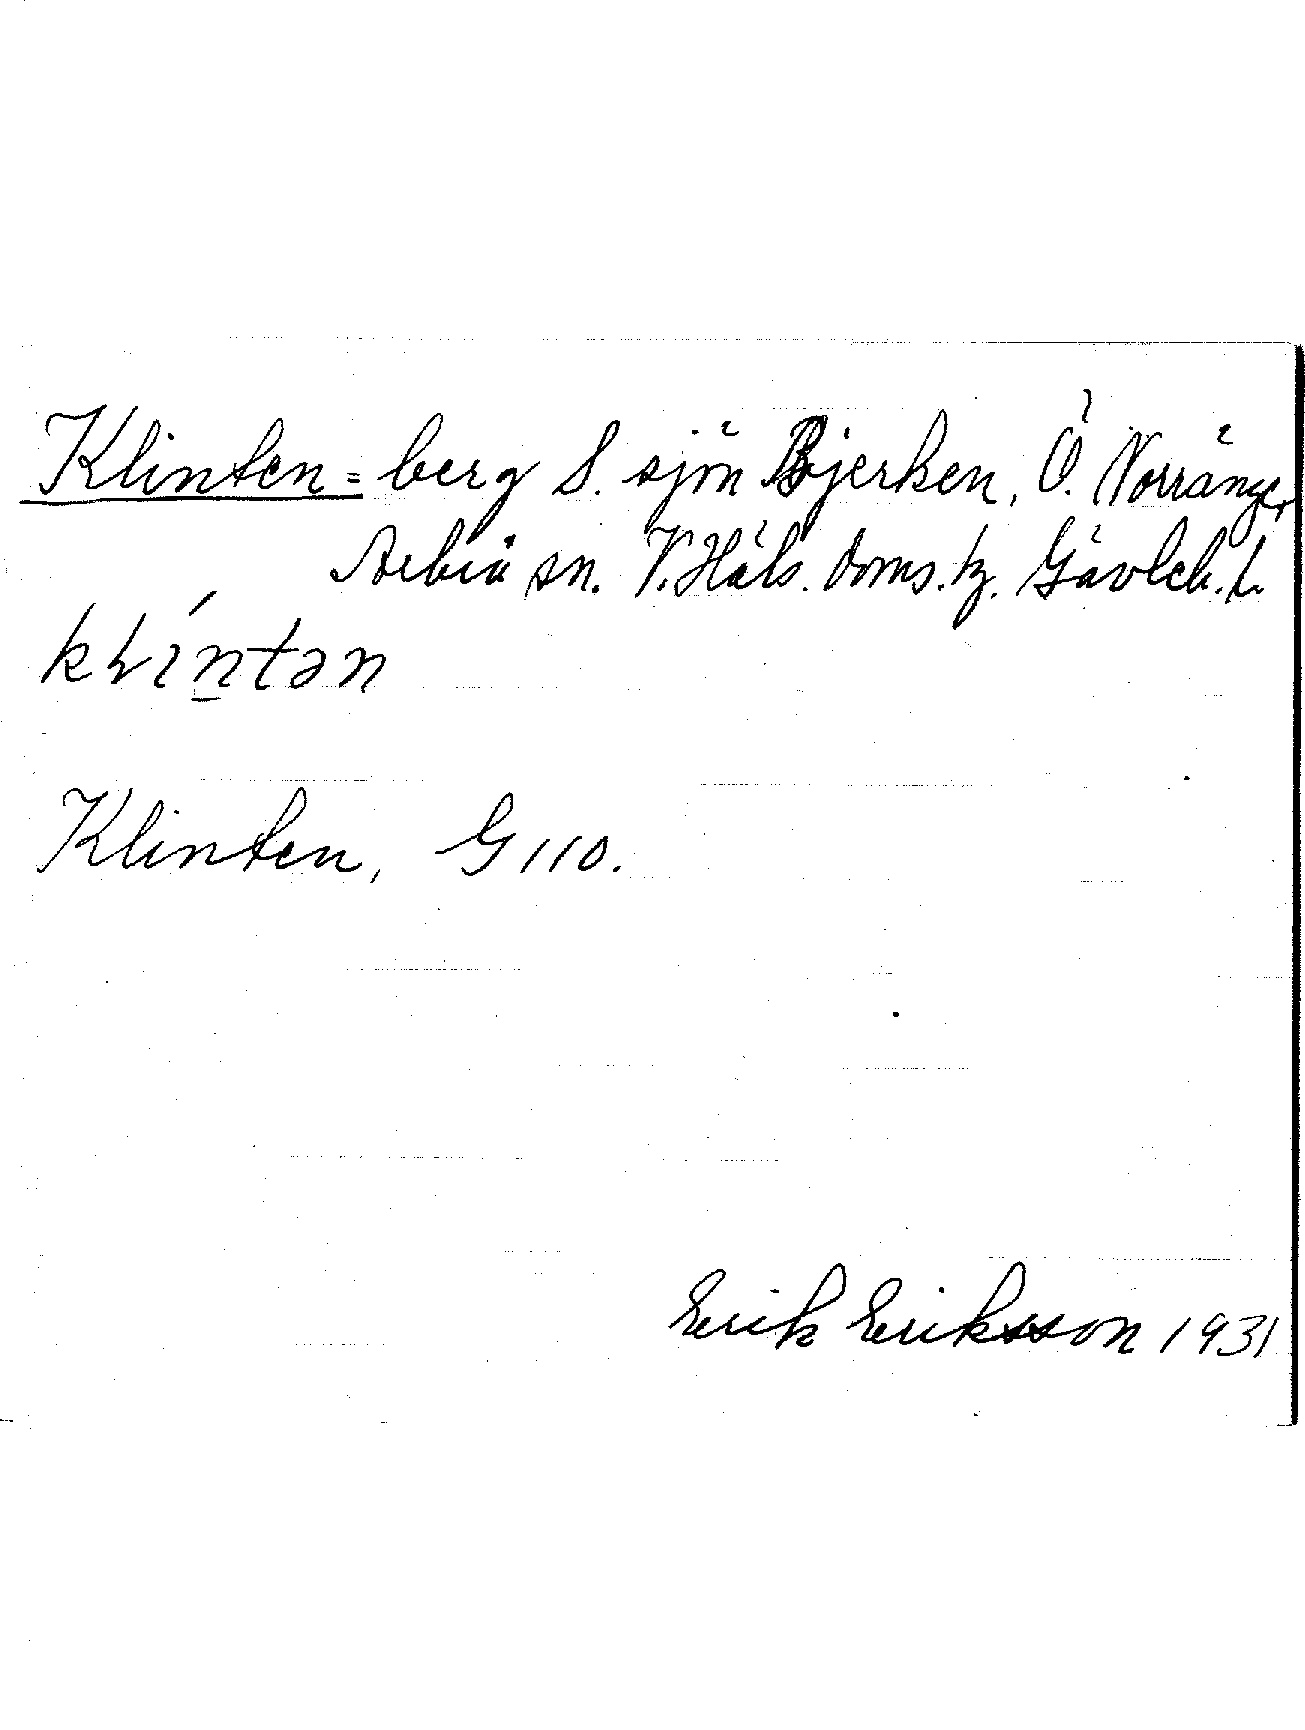 Klinten = berg S. sjön Bjerken, Ö. Norränge,
Arbrå sn. V. Häls. doms. tg. Gävleb. l.
kḷíntən
Klinten, G 110.
Erik Eriksson 1931